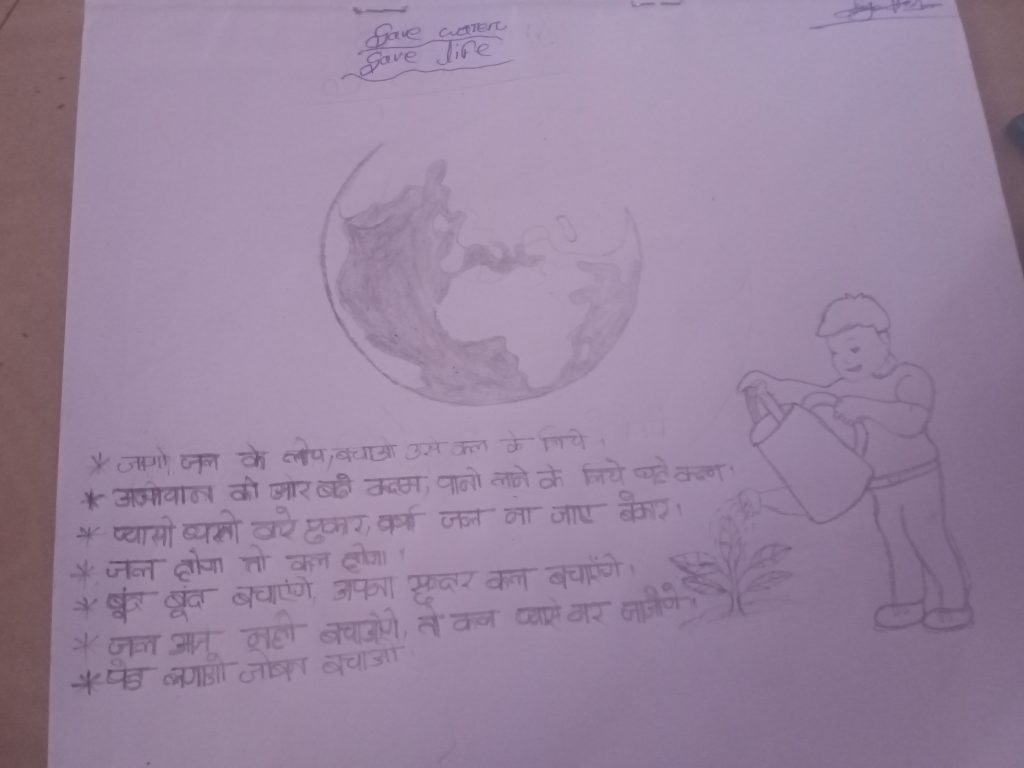 Save water
Save life
* जागो जल के लोय, बचाओ उसे कल के लिये।
* की ओर बढ़े कदम, पानी लाने के लिये
* प्यासी करे पुकार, वर्षा जल ना जाए बेकार।
* जल होगा तो कल होगा।
* बूंद बूंद बचाएंगे, अपना सुन्दर कल बचाएंगे।
* जल नही बचाओगे, तो कल प्यासे मर जाओगे।
* पेड लगाओ जीवन बचाओ